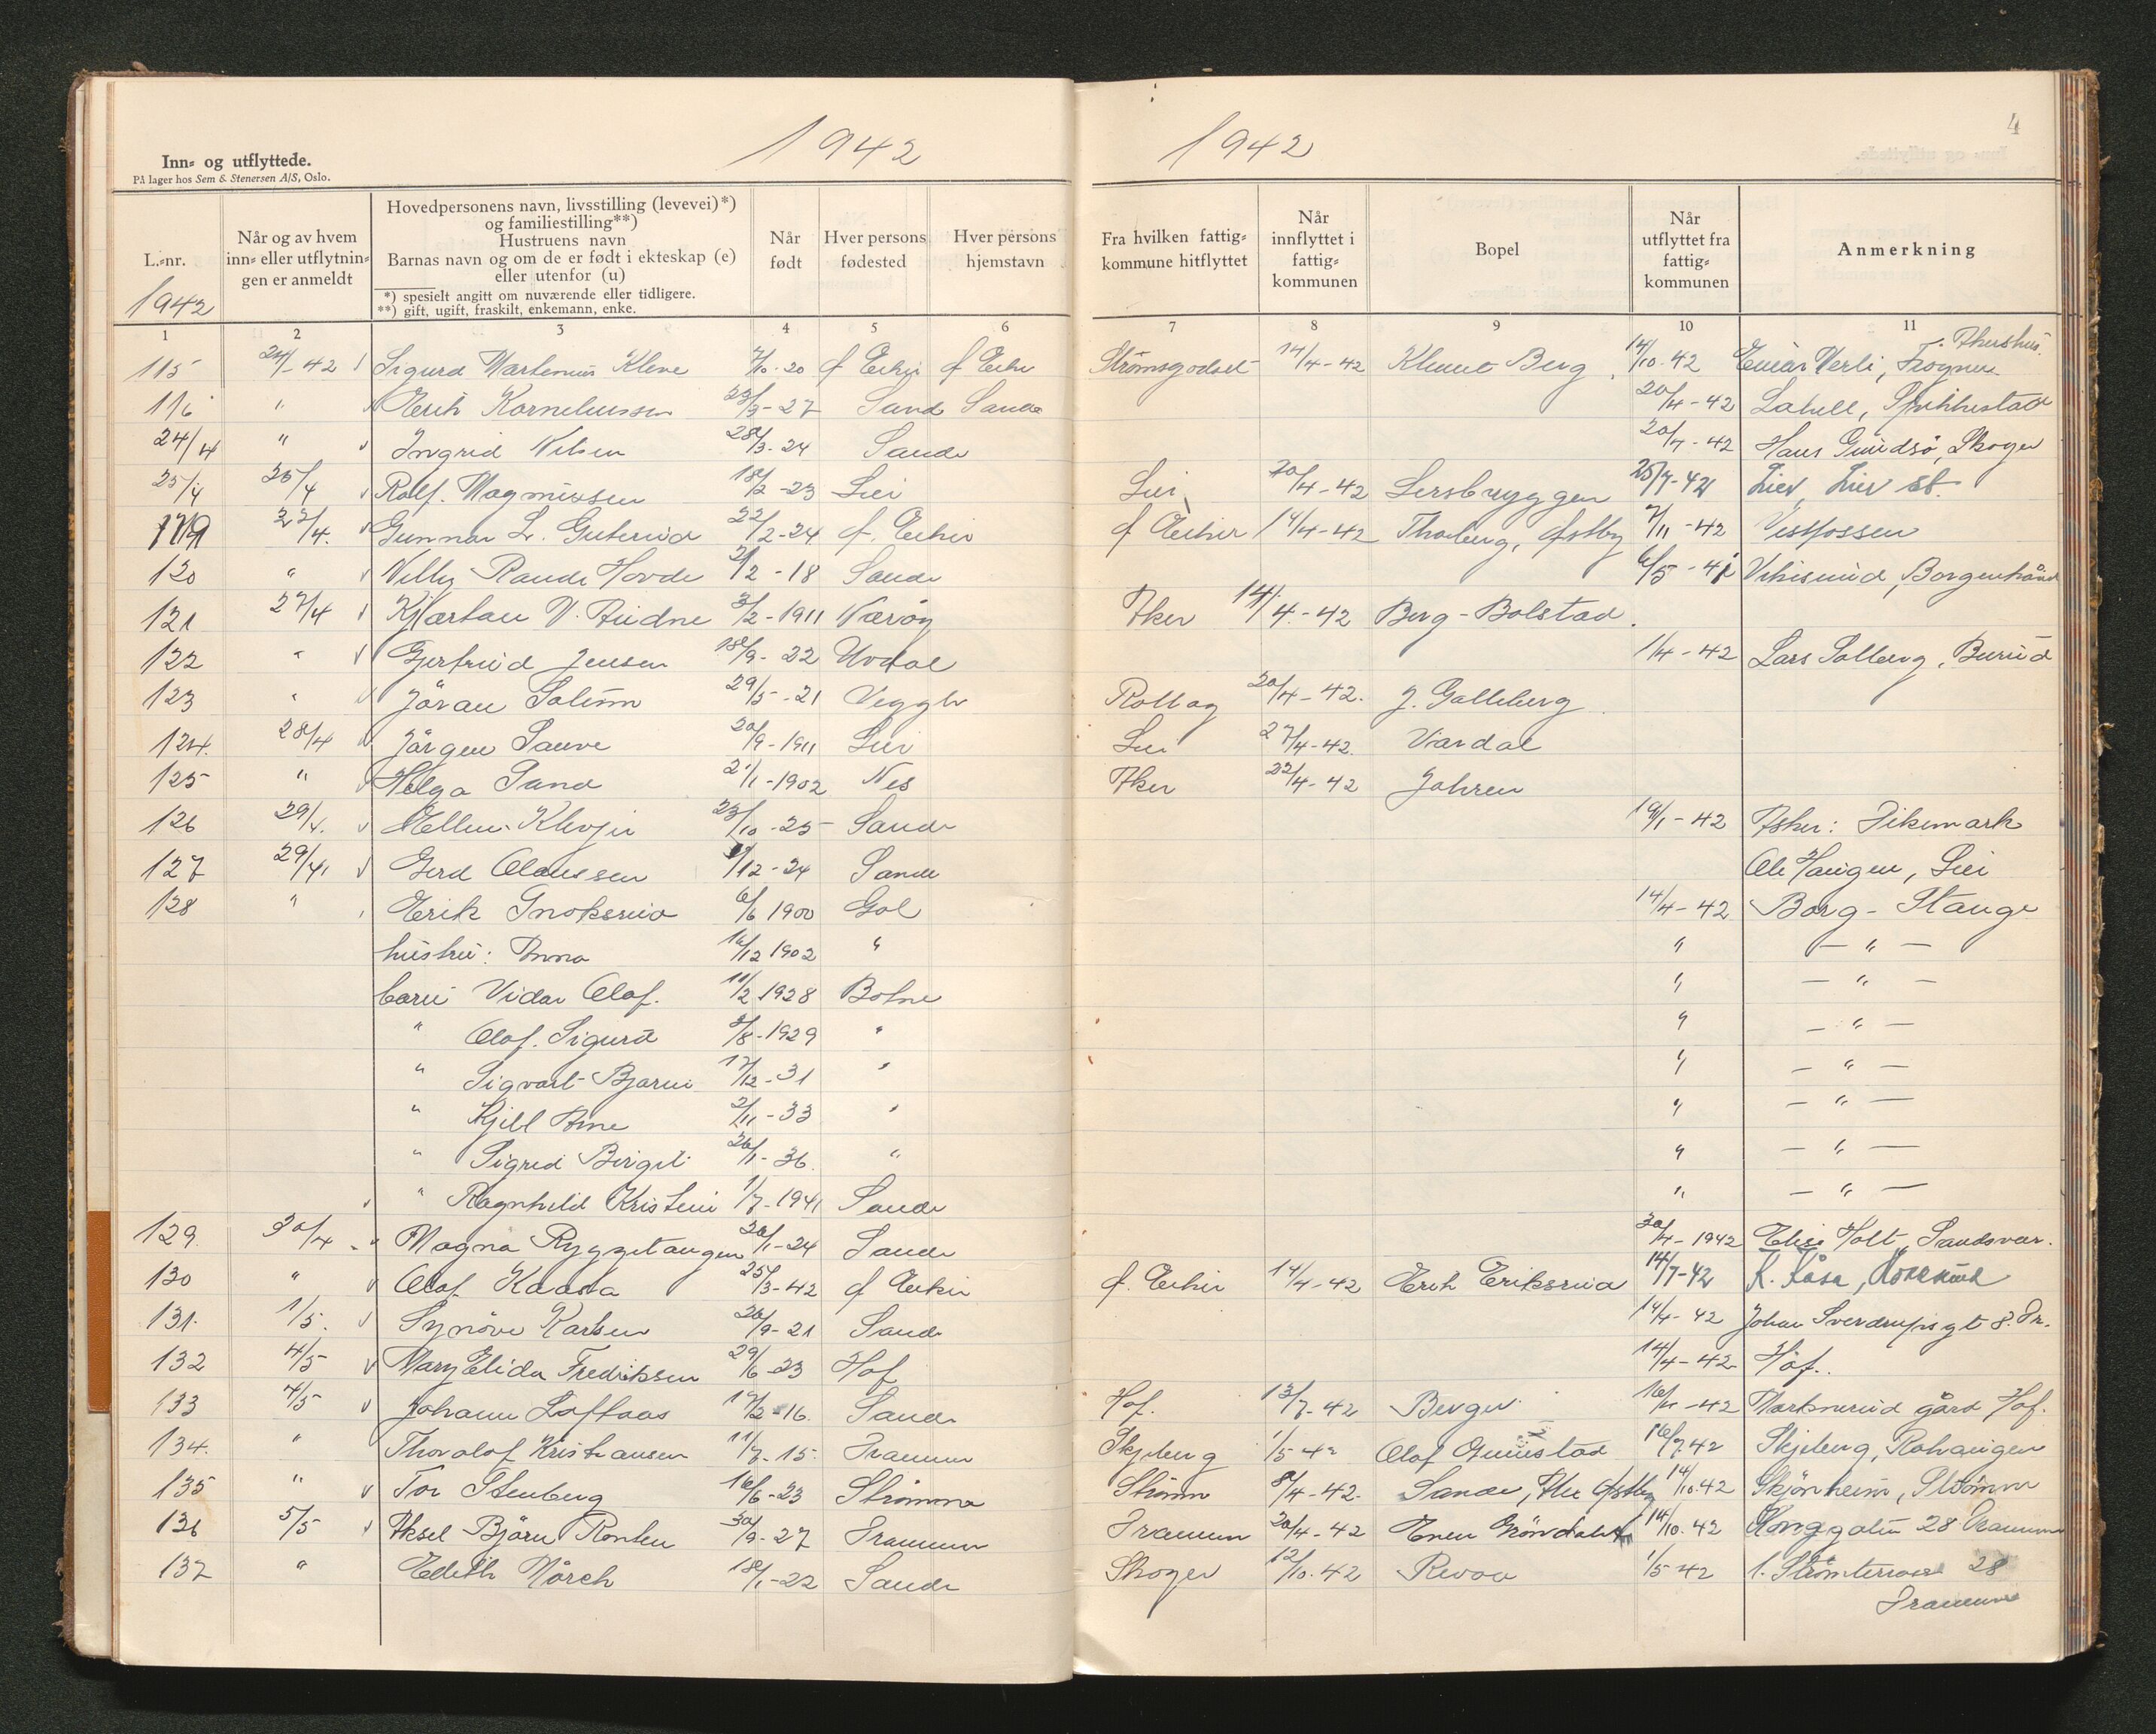 1942
1942
4
Inn- og utflyttede.
På lager hos Sem & Stenersen A/S, Oslo.
L.-nr.
1942
Når og av hvem inn- eller utflytnin-gen er anmeldt
Hovedpersonens navn, livsstilling (levevei)*)
og familiestilling**)
Hustruens navn
Barnas navn og om de er født i ekteskap (e)
eller utenfor (u)
*) spesielt angitt om nuværende eller tidligere.
**) gift, ugift, fraskilt, enkemann, enke.
Når født
Hver persons fødested
Hver persons hjemstavn
Fra hvilken fattig-kommune hitflyttet
Når innflyttet i fattig-kommunen
Bopel
Når utflyttet fra fattig-kommunen
Anmerkning
1 2 3 4 5 6 7 8 9 10 11
115 24/4-42 Sigurd Martinius Kleve 7/10-20 Strømsgodset 14/4-42 Berg 14/10-42 Einar Verli, Frogner
116 " Erik Korneliussen 23/3-27 Sand Sande 20/4-42 Lahell, Spikkestad
24/4 " Ingrid Nilsen 28/3-24 Sande 20/4-42 Hans Skoger
25/4 25/4 Rolf Magnussen 18/2-23 Lier Lier 20/4-42 Lersbryggen 25/7-42 Lier, Lier st.
119 27/4. Gunnar L. Guterud 22/2-24 ø. Eiker ø Eiker 14/4-42 Thorberg, Østby 7/11-42 Vestfossen
120 " Villy Randi Hovde 21/2-18 Sande 6/5-42
121 27/4 Kjartan V. Audne 3/2-1911 Nærøy Aker 14/4-42 Berg-Bolstad.
122 " Gjertrud Jensen 18/9-22 Uvdal 1/4-42 Lars Solberg, Burud
123 " Jöran Solum 29/5-21 Veggli Rollag 20/4-42. J. Galleberg
124. 28/4 Jörgen Sauve 20/9-1911 Lier Lier 27/4-42. Vardal
125 " Helga Sand 2/1-1902 Nes Aker 22/4-42 Jahren
126 29/4. Ellen Klevjer 23/10-25 Sande 19/1-42 Asker: Dikemark
127 29/4 Gerd Olaussen /12-24 Sande Ole Haugen, Lier
128 " Erik Gnoksrud 6/6 1900 Gol 14/4-42 Borg-Stange
hustru: Anna 16/12 1902 " " - " -
barn Vidar Olaf. 11/2 1928 Botne " - " -
" Olaf. Sigurd 9/8-1929 " " - " -
" Sigvart Bjarne 17/12-31 " " - " -
" Kjell Arne 2/11-33 " " - " -
" Sigrid Birgit 26/1-36. " " - " -
" Ragnhild Kristine 1/7-1941 Sande " - " -
129. 30/4 Magna Ryggetangen 20/1-24 Sande 30/4-1942 Elise Holt, Sandsvær.
130 " Olaf Kaasa 25/3-42 ø Eiker ø. Eiker 14/4-42 Erik Eriksrud 14/7-42 K. Kåsa,
131. 1/5. Synöve Karlsen 26/9-21 Sande 14/4-42 Johan Sverdrupsgt 8. Dr.
132 4/5 Mary Elida Fredriksen 29/6-23 Hof 14/4-42 Hof.
133 4/5 Johann Loftaas 17/2-16. Sande Hof. 13/7-42 Berger 16/11-42 gård Hof.
134. " Thorolof Kristiansen 11/7-15. Drammen Skjeberg 1/5 42 Olaf 16/7 42 Skjeberg, Rokaugen
135 " Tor Stenberg 16/6-23 Strömm Strömm 8/4-42. Sande, Østby 14/10.42 Skjönheim, Strömm
136 5/5 Aksel Björn Ronken 30/9-27 Drammen Drammen 20/4-42 14/10.42 Konggaten 28 Drammen
137 " Edith Mörch 18/1-22 Sande Skoger 12/10.42 Revaa 1/5-42 28
Drammen